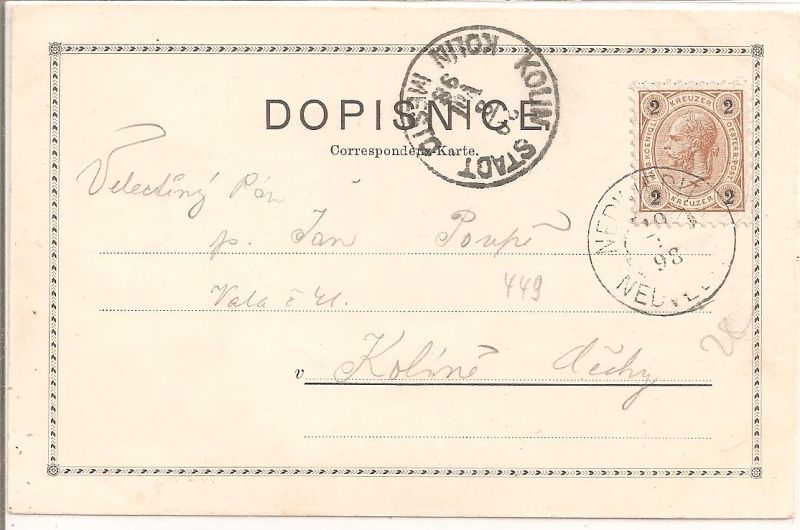 KOLIN STADT
KOLIN MĚSTO
98
DOPISNICE
Correspondenz-Karte.
2 KREUZER 2
KAIS. KOENIGL. OESTERR. POST
2 KREUZER 2
98
Velectěný Pán
p. Jan Poupě
449
v Kolíně Čechy